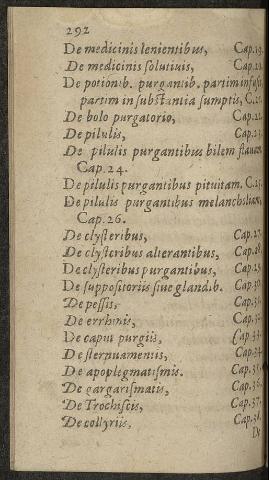 292
De medicinis lenientibus, Cap.19.
De medicinis solutiuis, Cap.20.
De potionib. purgantib. partim infusis,
partim in substantia sumptis, C.21.
De bolo purgatorio, Cap.22.
De pilulis, Cap.23.
De pilulis purgantibus bilem flauam,
Cap.24.
De pilulis purgantibus pituitam. C.25.
De pilulis purgantibus melancholiam,
Cap.26.
De clysteribus, Cap.27.
De clysteribus alterantibus, Cap.28.
De clysteribus purgantibus, Cap.29.
De suppositoriis siue gland.b. Cap.30.
De pessis, Cap.31.
De errhinis, Cap.
De caput purgiis, Cap.33.
De sternuamentis, Cap.34.
De apoplegmatismis. Cap.35.
De gargarismatis, Cap.36.
De Trochiscis, Cap.37.
De collyriis, Cap.38.
De